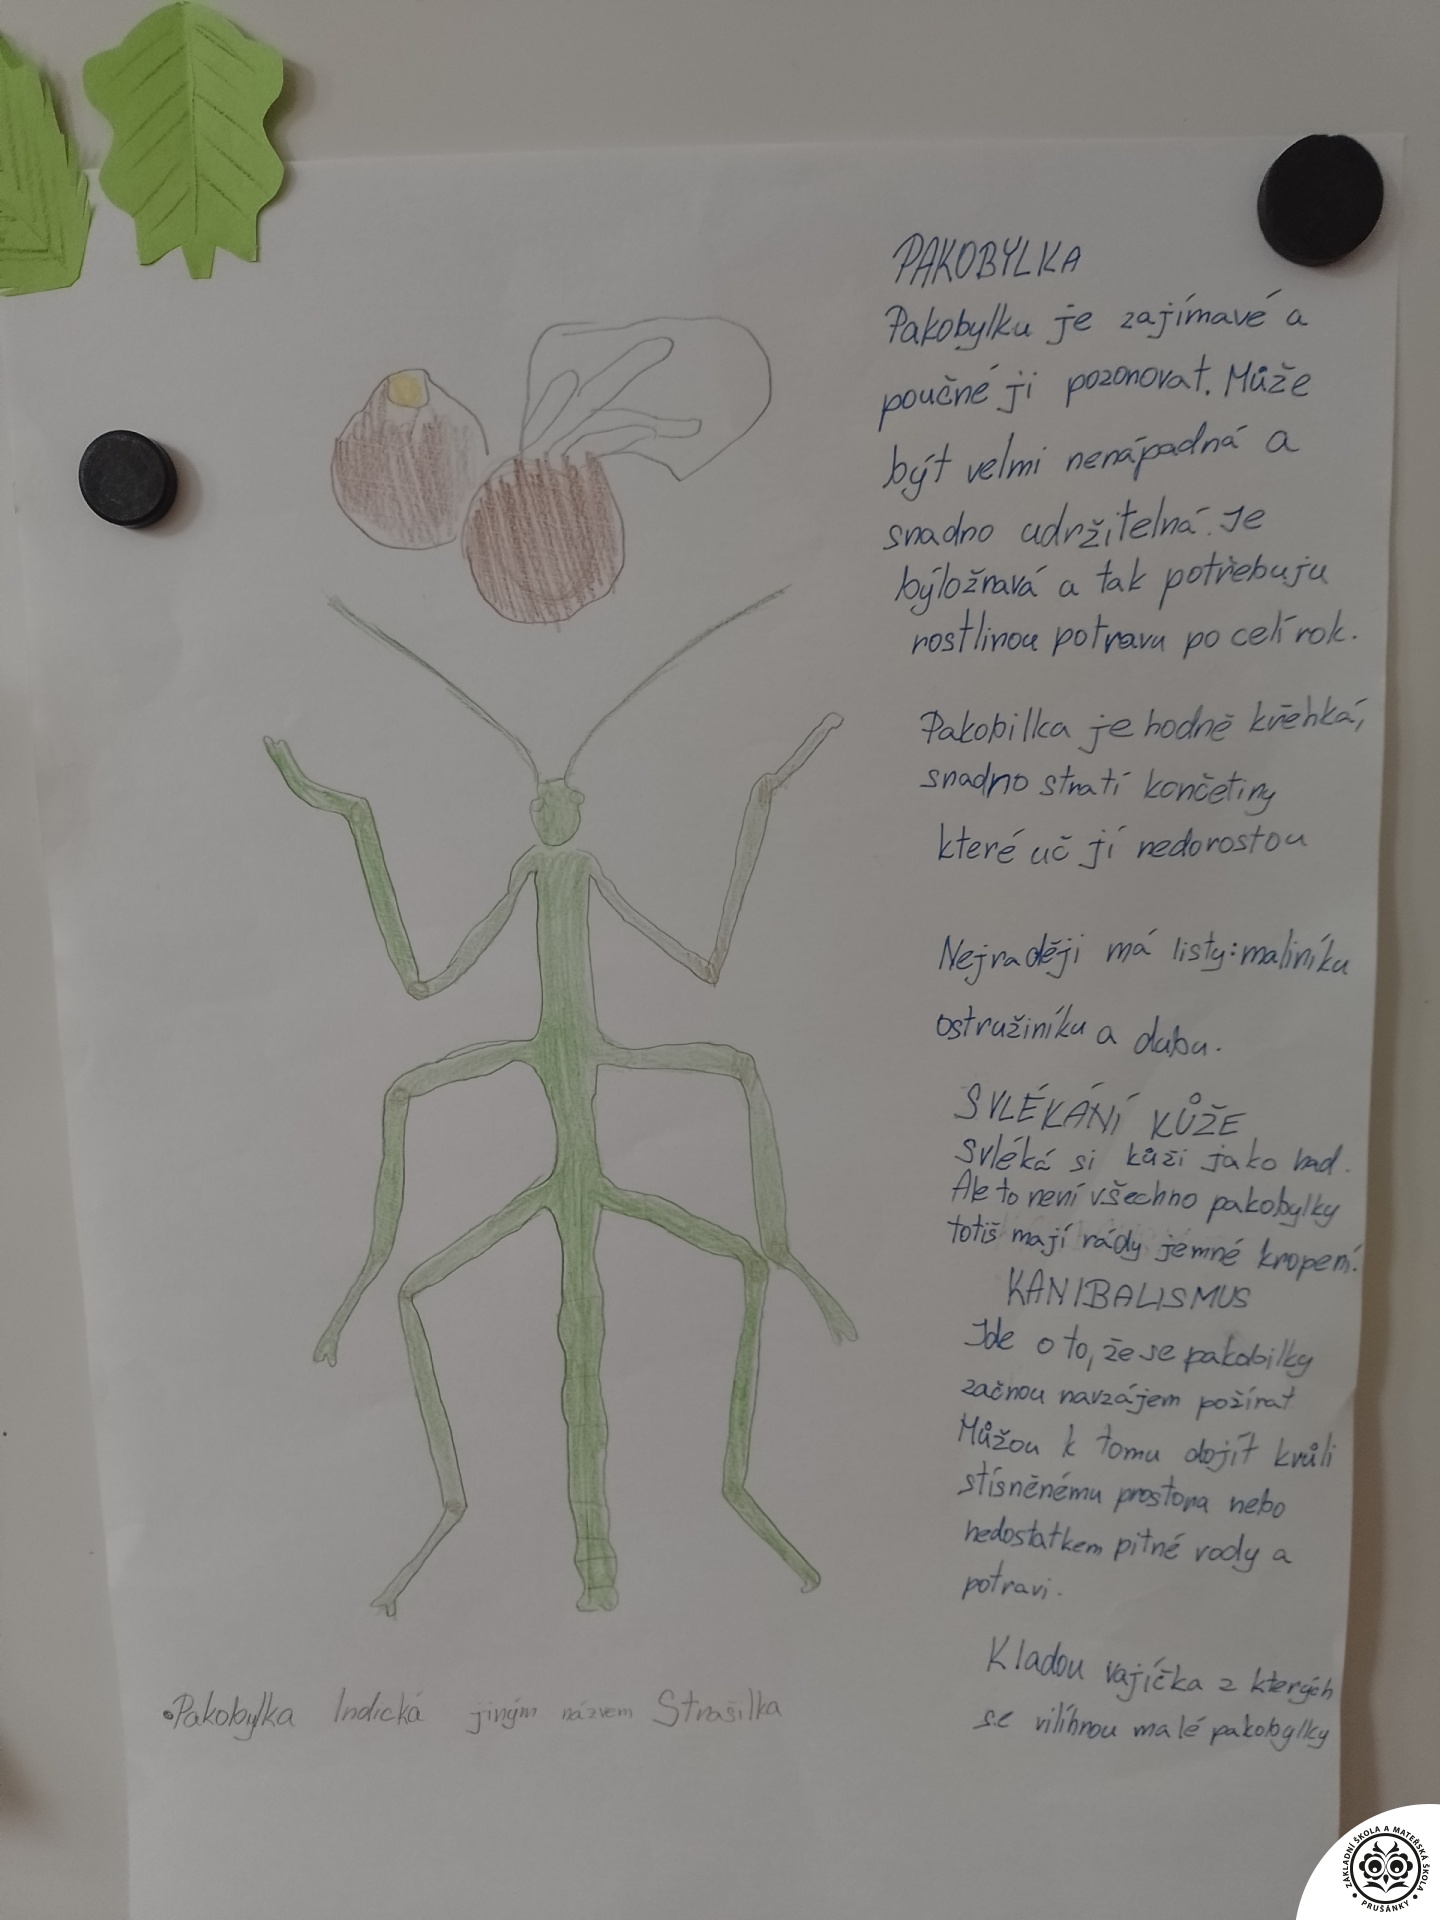 PAKOBYLKA
Pakobylku je zajímavé a
poučné ji pozonovat. Může
být velmi nenápadná a
snadno udržitelná. Je
býložravá a tak potřebuju
rostlinou potravu po celí rok.
Pakobilka je hodně křehká,
snadno stratí končetiny
které uč jí nedorostou
Nejraději má listy: maliníku
ostružiníku a dubu.
SVLÉKÁNÍ KŮŽE
Svléká si kůži jako had.
Ale to není všechno pakobylky
totiš mají rády jemné kropení.
KANIBALISMUS
Jde o to, že se pakobilky
začnou navzájem požírat
Můžou k tomu dojít kvůli
stísněnému prostoru nebo
nedostatkem pitné vody a
potravi.
Kladou vajíčka z kterých
se vilíhnou malé pakobylky
•Pakobylka Indická jiným názvem Strašilka
ZÁKLADNÍ ŠKOLA A MATEŘSKÁ ŠKOLA
• PRUŠÁNKY •